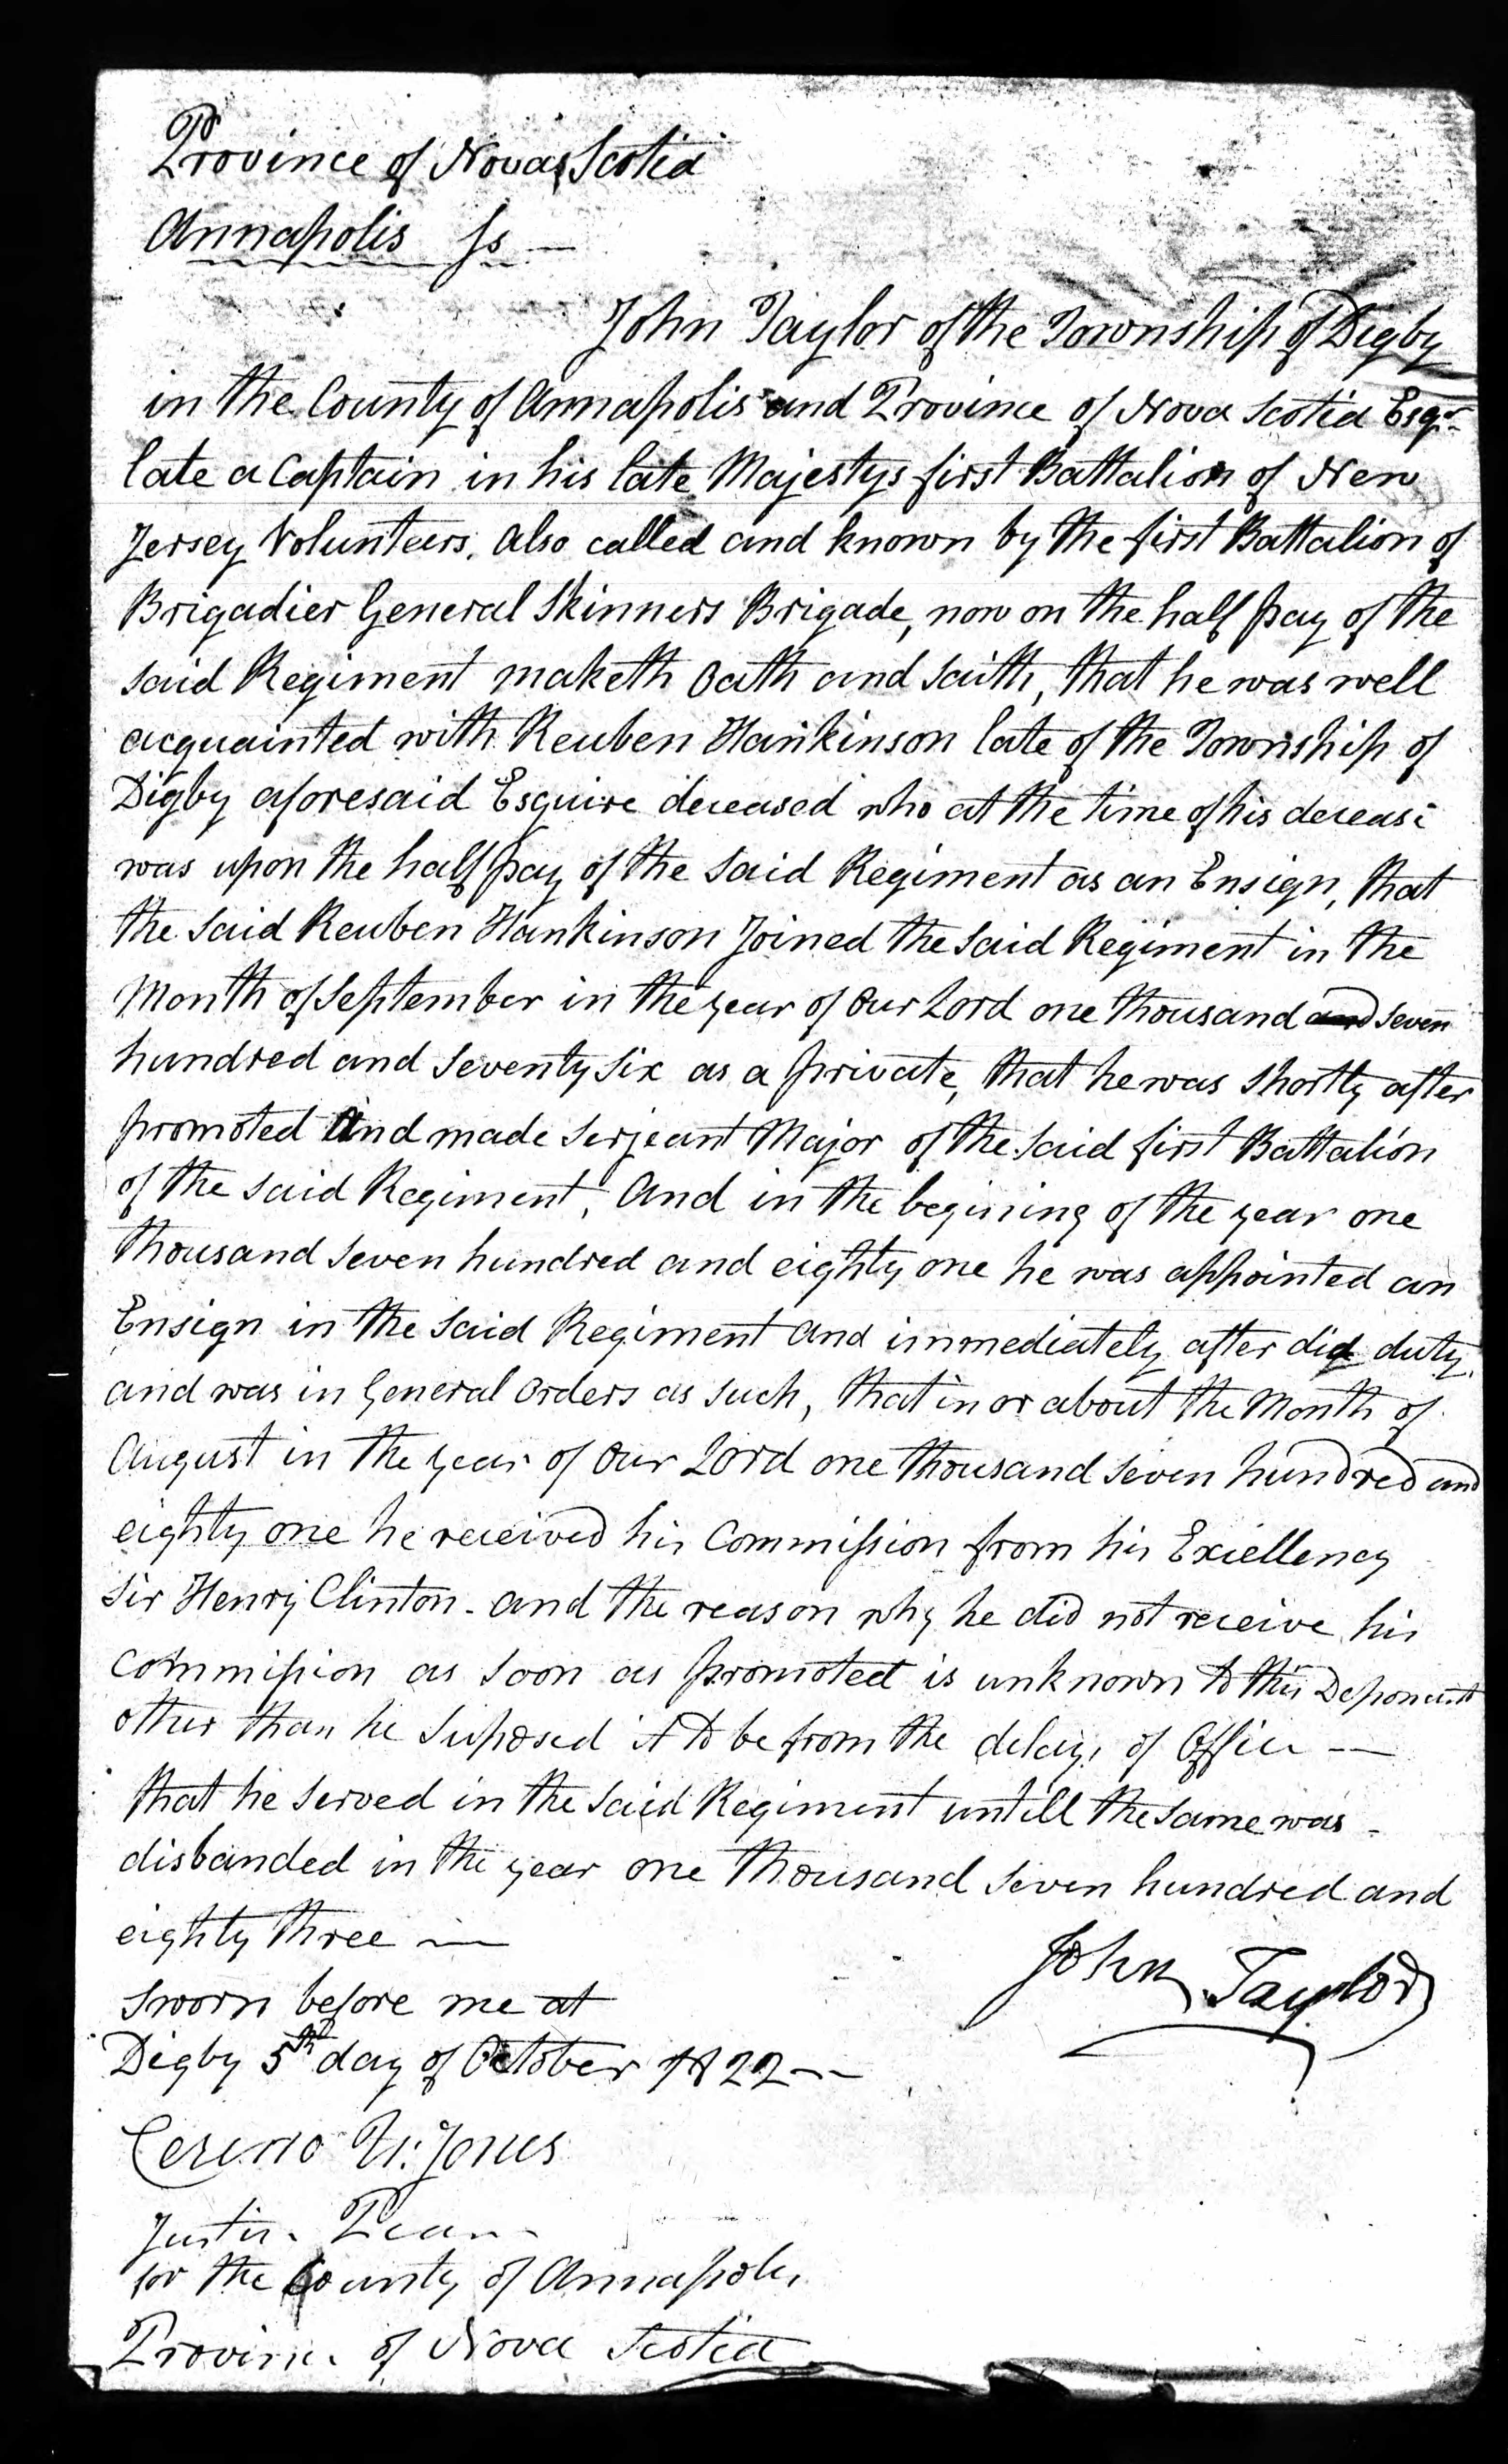 Province of Nova Scotia
Annapolis Ss —
John Taylor of the Township of Digby
in the County of Annapolis and Province of Nova Scotia Esqr
late a Captain in his late Majestys first Battalion of New
Jersey Volunteers. also called and known by the first Battalion of
Brigadier General Skinners Brigade, now on the half pay of the
said Regiment maketh Oath and Saith, that he was well
acquainted with Reuben Hankinson late of the Township of
Digby aforesaid Esquire deceased who at the time of his decease
was upon the half pay of the Said Regiment as an Ensign, that
the Said Reuben Hankinson Joined the Said Regiment in the
Month of September in the year of Our Lord one thousand and seven
hundred and Seventy Six as a private, that he was Shortly after
promoted And made Serjeant Major of the Said first Battalion
of the Said Regiment, And in the begining of the year one
thousand Seven hundred and eighty one he was appointed an
Ensign in the Said Regiment and immediately after did duty
and was in General Orders as Such, that in or about the Month of
August in the year of Our Lord one thousand Seven hundred and
eighty one he received his Commission from his Excellency
Sir Henry Clinton - and the reason why he did not receive his
Commission as Soon as promoted is unknown to this Deponent
other than he Suposed it to be from the delays of Office —
that he Served in the Said Regiment untill the Same was -
disbanded in the year one thousand Seven hundred and
eighty three —
John Taylor
Sworn before me at
Digby 5th day of October 1822 —
Cereno U. Jones
Justice Peace
for the County of Annapolis
Province of Nova Scotia